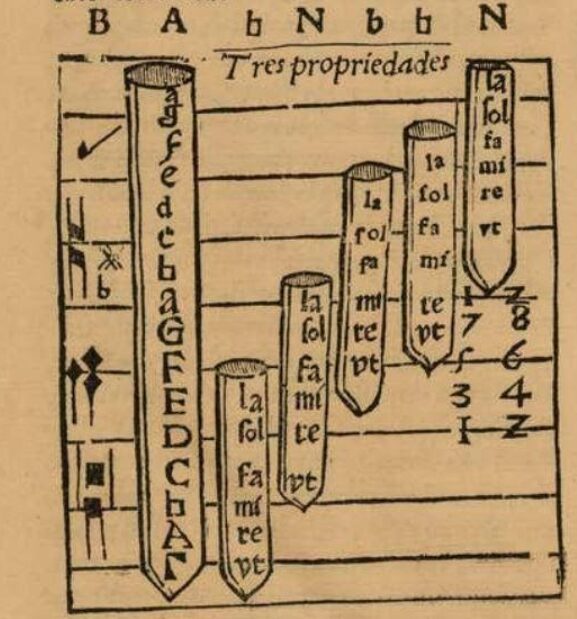 B A b N b b N
Tres propriedades
b
a
g
f
e
d
c
b
a
G
F
E
D
C
b
A
Γ
la
ſol
fa
mi
re
vt
la
ſol
fa
mi
re
vt
la
ſol
fa
mi
re
vt
la
ſol
fa
mi
re
vt
la
ſol
fa
mi
re
vt
1 2
7 8
5 6
3 4
1 2